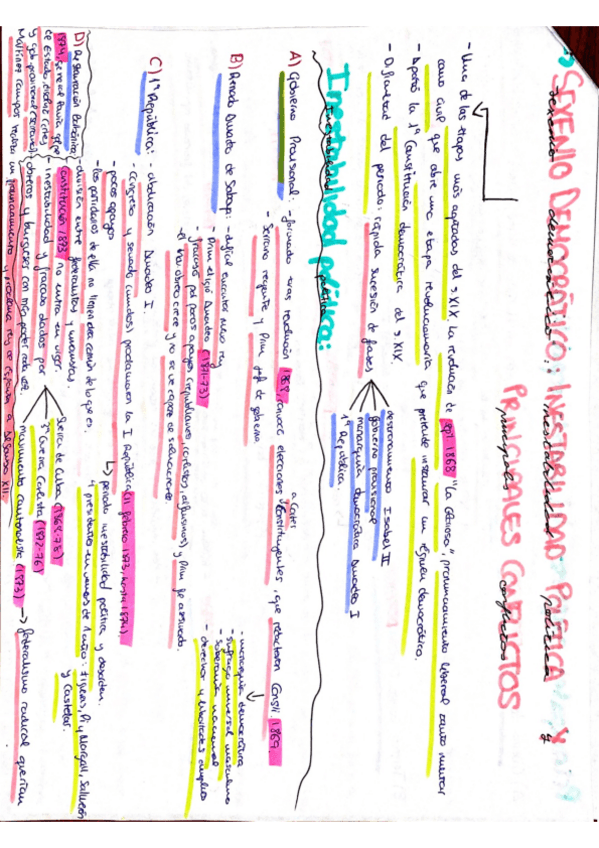 SEXENIO DEMOCRÁTICO: INESTABILIDAD POLÍTICA Y
PRINCIPALES CONFLICTOS
- Una de las etapas más agitadas del s XIX. La revolución de sept 1868 "La Gloriosa", pronunciamiento liberal tanto militar
como civil que abre una etapa revolucionaria que pretende instaurar un régimen democrático.
- Aportó la 1ª Constitución democrática del s XIX.
- Dificultad del periodo: rápida sucesión de fases
destronamiento Isabel II
gobierno provisional
monarquía democrática Amadeo I
1ª República.
Inestabilidad política:
A) Gobierno Provisional: - formado tras revolución 1868, convocó elecciones a Cortes Constituyentes, que redactaron Consti. 1869.
- Serrano regente y Prim jefe de gobierno
- monarquía democrática
- sufragio universal masculino
- soberanía nacional
- derechos y libertades amplios
B) Reinado Amadeo de Saboya: - difícil encontrar nuevo rey
- Prim eligió Amadeo (1871-73)
- fracasó por pocos apoyos (republicanos, carlistas, alfonsinos) y Prim fue asesinado.
- el mov obrero crece y no se ve capaz de solucionarlo.
C) 1ª República: - abdicación Amadeo I.
- Congreso y senado (unidos) proclamaron la I República (11 febrero 1873, hasta 1874).
- pocos apoyos
periodo inestabilidad política y desorden.
4 presidentes en menos de 1 año: Figueras, Pi y Margall, Salmerón
y Castelar.
- los partidarios de ella no tenían clara la idea de lo que es.
- división entre federalistas y unitarios.
- constitución 1873 no entra en vigor.
- inestabilidad y fracaso dados por
Guerra de Cuba (1868-78)
3ª Guerra Carlista (1872-76)
movimiento cantonalista (1873) → federalismo radical querían
D) Restauración Borbónica:
1874, general Pavía golpe
de Estado, disolvió Cortes
y gob. provisional (Serrano)
Martínez Campos realiza un pronunciamiento y proclama rey de España a Alfonso XII.